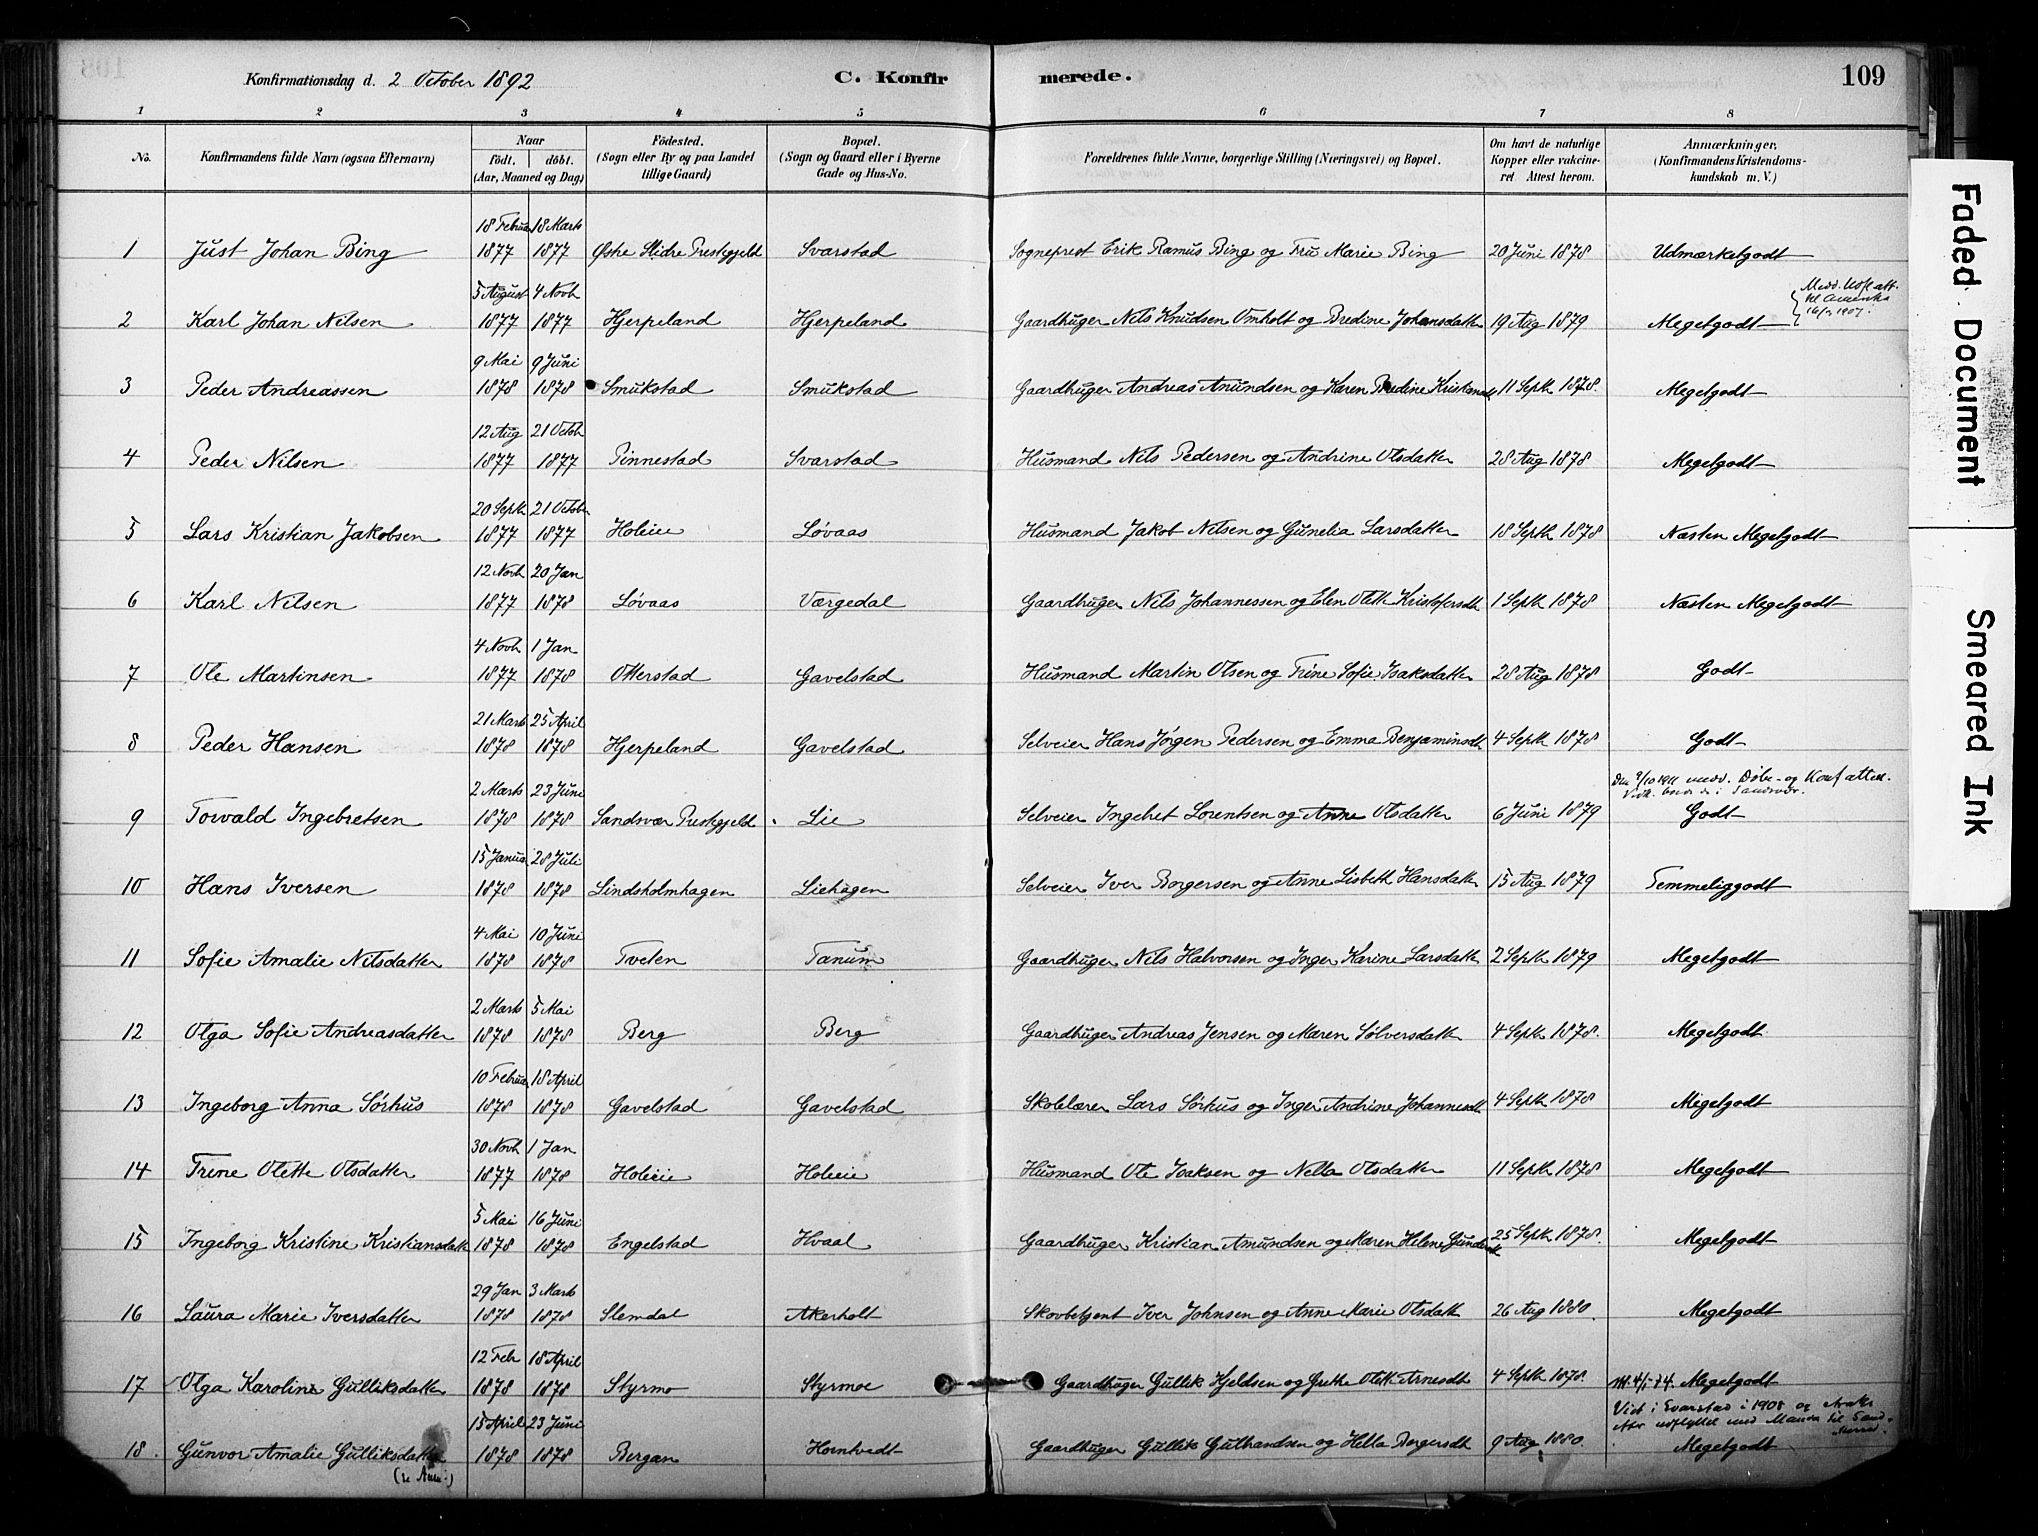 Konfirmationsdag d. 2 October 1892
C. Konfirmerede.
109
1 2 3 4 5 6 7 8
No. Konfirmandens fulde Navn (ogsaa Efternavn) Naar födt. döbt. (Aar, Maaned og Dag) Födested. (Sogn eller By og paa Landet tillige Gaard) Bopæl. (Sogn og Gaard eller i Byerne Gade og Hus-No. Forældrenes fulde Navne, borgerlige Stilling (Næringsvei) og Bopæl. Om havt de naturlige Kopper eller vakcineret Attest herom. Anmærkninger, (Konfirmandens Kristendomskundskab m. V.)
18 Februar 18 Marts
1 Just Johan Bing 1877 1877 Østre Slidre Prestegjeld Svarstad Sogneprest Erik Ramus Bing og Fru Marie Bing 20 Juni 1878 Udmærketgodt
5 August 4 Novb
2 Karl Johan Nilsen 1877 1877 Hjerpeland Hjerpeland Gaardbruger Nils Knudsen Omholt og Bredine Johansdatter 19 Aug 1879 Megetgodt
til Amerika
9 Mai 9 Juni
3 Peder Andreassen 1878 1878 Smukstad Smukstad Gaardbruger Andreas Anundsen og Karen Bredine Kristiansd 11 Septb 1878. Megetgodt
12 Aug 21 Octob
4 Peder Nilsen 1877 1877 Pinnestad Svarstad Husmand Nils Pedersen og Andrine Olsdatter 28 Aug 1878 Megetgodt
20 Septb 21 Octob
5 Lars Kristian Jakobsen 1877 1877 Holeie Løvaas Husmand Jakob Nilsen og Gunelia Larsdatter 18 Septb 1878 Næsten Megetgodt
12 Novb 20 Jan
6 Karl Nilsen 1877 1878 Løvaas Værgedal Gaardbruger Nils Johannessen og Elen Olette Kristofersdt 1 Septb 1878 Næsten Megetgodt
4 Novb 1 Jan
7 Ole Martinsen 1877 1878 Otterstad Gavelstad Husmand Martin Olsen og Trine Sofie Isaksdatter 28 Aug 1878 Godt
21 Marts 25 April
8 Peder Hansen 1878 1878 Hjerpeland Gavelstad Selveier Hans Jørgen Pedersen og Emma Benjaminsdt 4 Septb 1878 Godt
2 Marts 23 Juni
9 Torvald Ingebretsen 1878 1878 Sandsvær Prestegjeld Lie Selveier Ingebret Lorentsen og Anne Olsdatter 6 Juni 1879 Godt
15 Januar 28 Juli
10 Hans Iversen 1878 1878 Lindsholmhagen Liehagen Selveier Iver Borgersen og Anne Lisbeth Hansdatter 15 Aug 1879 Temmeliggodt
4 Mai 10 Juni
11 Sofie Amalie Nilsdatter 1878 1878 Tveten Tanum Gaardbruger Nils Halvorsen og Inger Karine Larsdatter 2 Septb 1879 Megetgodt
2 Marts 5 Mai
12 Olga Sofie Andreasdatter 1878 1878 Berg Berg Gaardbruger Andreas Jensen og Maren Sølversdatter 4 Septb 1878. Megetgodt
10 Februar 18 April
13 Ingeborg Anna Sørhus 1878 1878 Gavelstad Gavelstad Skolelærer Lars Sørhus og Inger Andrine Johannesdt 4 Septb 1878 Megetgodt
30 Novb 1 Jan
14 Trine Olette Olsdatter 1877 1878 Holeie Holeie Husmand Ole Isaksen og Nella Olsdatter 11 Septb 1878 Megetgodt
5 Mai 16 Juni
15 Ingeborg Kristine Kristiansdatt 1878 1878 Engelstad Hvaal Gaardbruger Kristian Amundsen og Maren Helene 25 Septb 1878. Megetgodt
29 Jan 3 Marts
16 Laura Marie Iversdatter 1878 1878 Slemdal Akerholt Skovbetjent Iver Johnsen og Anne Marie Olsdatt 26 Aug 1880. Megetgodt
12 Feb 18 April
17 Olga Karoline Gulliksdatter 1878 1878 Styrmo Styrmoe Gaardbruger Gullik Kjeldsen og Grethe Olette Arnesdt 4 Septb 1878. Megetgodt
15 April 23 Juni
18. Gunvor Amalie Gulliksdatter 1878 1878 Bergan Horntvedt Gaardbruger Gullik Gulbrandsen og Hella Borgersdt 9 Aug 1880. Megetgodt
Faded Document
Smeared Ink